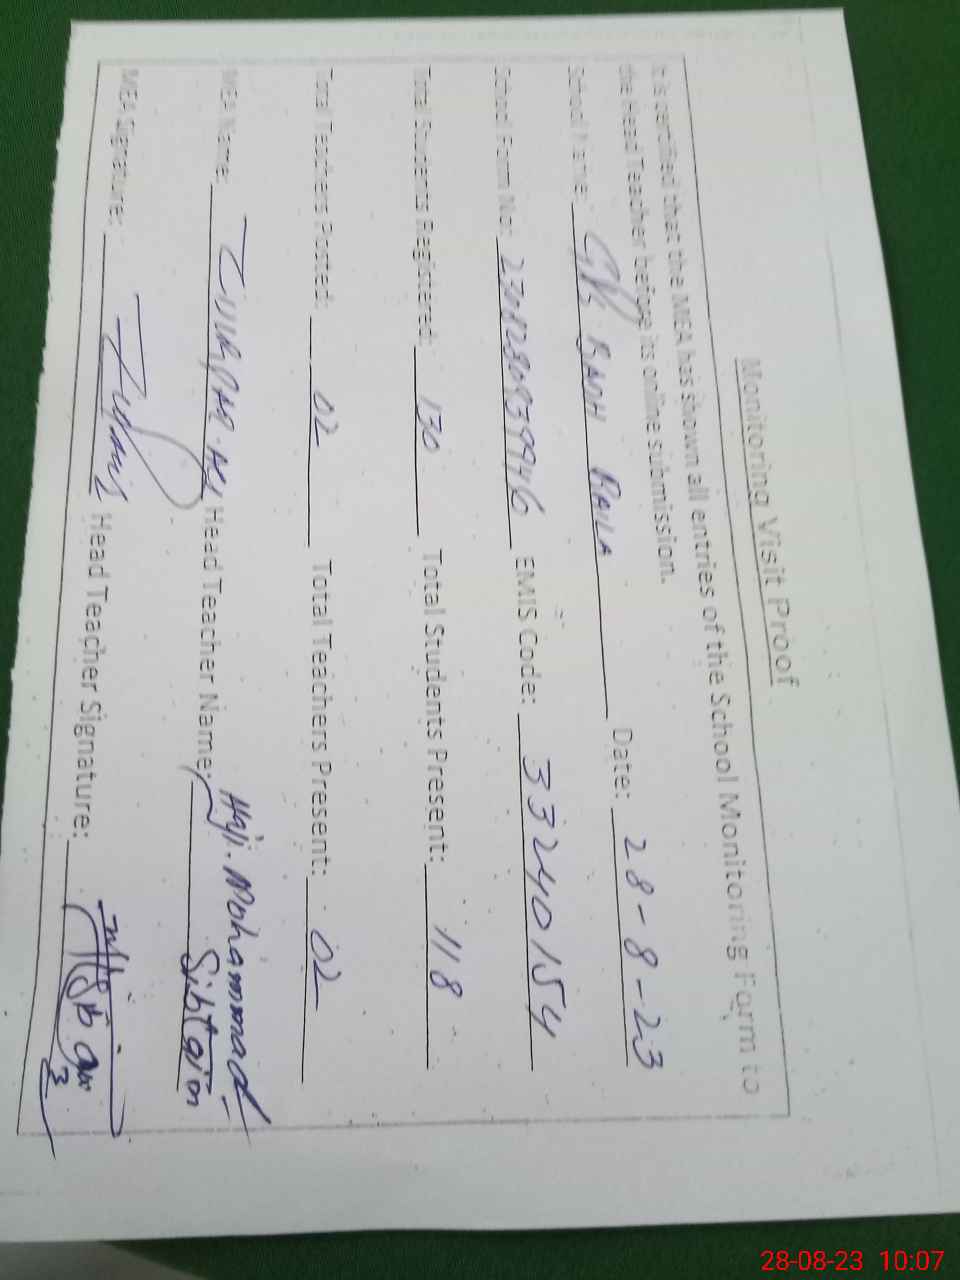 Monitoring Visit Proof
It is certified that the MEA has shown all entries of the School Monitoring Form to
the Head Teacher before its online submission.
School Name: GPS RADH RAILA Date: 28-8-23
School Form No: EMIS Code: 33240154
Total Students Registered: 130 Total Students Present: 118
Total Teachers Posted: 02 Total Teachers Present: 02
MEA Name: Head Teacher Name: Haji. Mohammad
Sibtain
MEA Signature: Head Teacher Signature:
28-08-23 10:07